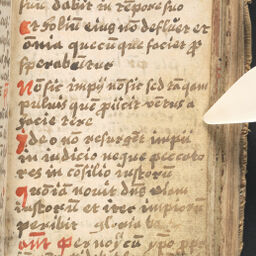 suū dabit in tempore suo
Et foliū eius nō defluet et
om̄ia quecūque faciet ꝓ
sperabūtur
Nō sic impij nō sic sed tāqam
puluis quē ꝓijcit vētus a
facie terre
Ideo nō resurgēt impii
in iudicio neque peccato
res in cōsilio iustorū
Quōiā nouit dn̄s viam
iustorū et iter impiorū
peribit gloria